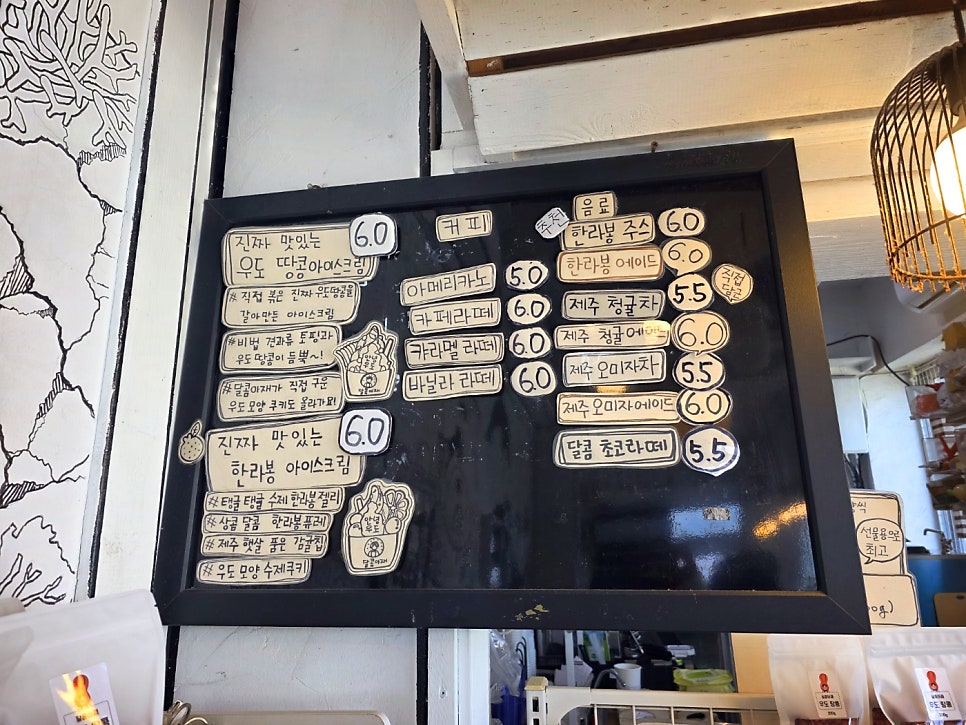 진짜 맛있는
우도 땅콩아이스크림
6.0
# 직접 볶은 진짜 우도땅콩을
갈아만든 아이스크림
# 비법 견과류 토핑과
우도 땅콩이 듬뿍~!
# 달콤아재가 직접 구운
우도모양 쿠키도 올라가요!
진짜 맛있는
한라봉 아이스크림
6.0
# 탱글 탱글 수제 한라봉젤리
# 상콤 달콤 한라봉퓨레
# 제주 햇살 품은 감귤칩
# 우도 모양 수제쿠키
달콤아재
커피
아메리카노 5.0
카페라떼 6.0
카라멜 라떼 6.0
바닐라 라떼 6.0
음료
추천
한라봉 주스 6.0
한라봉 에이드 6.0
직접
담근
제주 청귤차 5.5
제주 청귤 에이드 6.0
제주 오미자차 5.5
제주 오미자에이드 6.0
달콤 초코라떼 5.5
선물용으로
최고
우도 땅콩
우도 땅콩